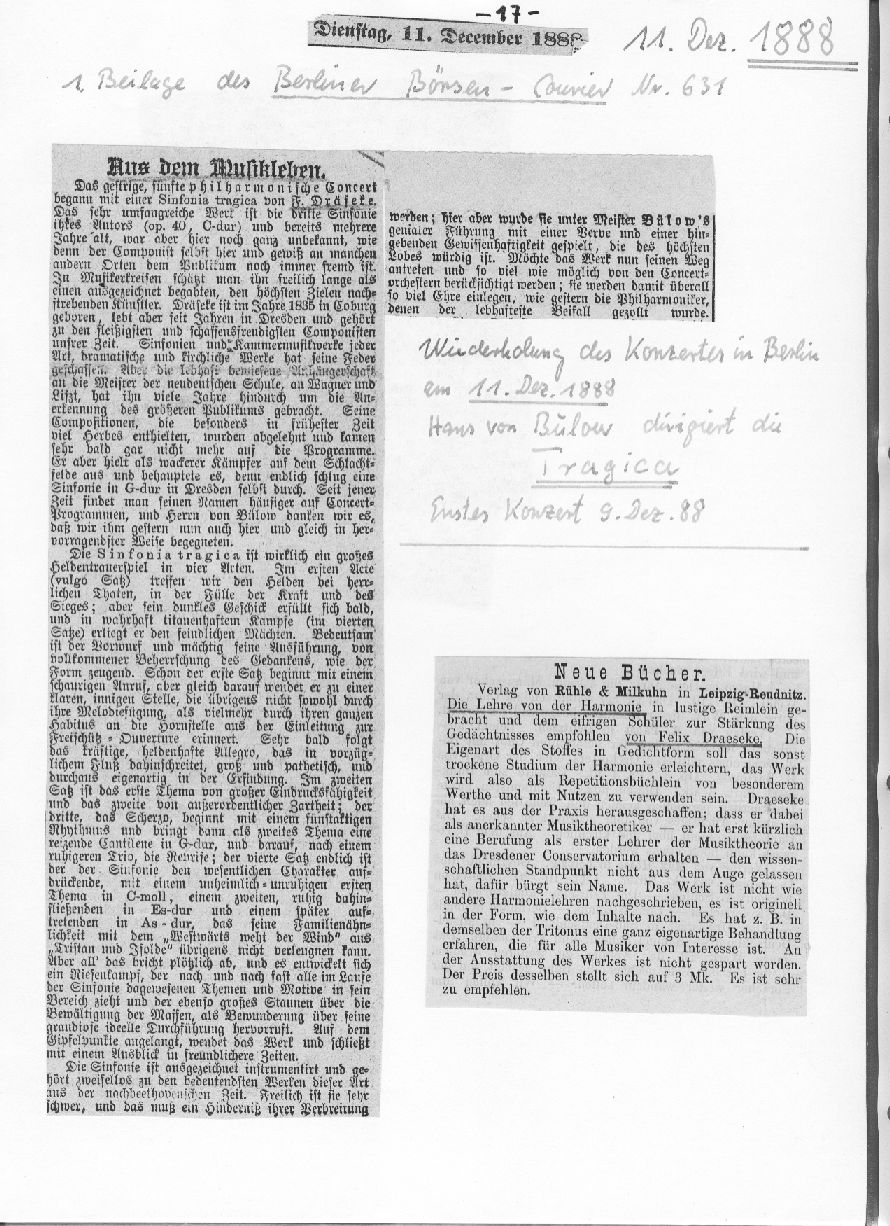 -17-
Dienstag, 11. December 1888
11. Dez. 1888
1. Beilage des Berliner Börsen-Courier Nr. 631
Aus dem Musikleben.
Das gestrige, fünfte philharmonische Concert
begann mit einer Sinfonia tragica von F. Dräseke.
Das sehr umfangreiche Werk ist die dritte Sinfonie
ihres Autors (op. 40, C-dur) und bereits mehrere
Jahre alt, war aber hier noch ganz unbekannt, wie
denn der Componist selbst hier und gewiß an manchen
andern Orten dem Publikum noch immer fremd ist.
In Musikerkreisen schätzt man ihn freilich lange als
einen ausgezeichnet begabten, den höchsten Zielen nach-
strebenden Künstler. Dräseke ist im Jahre 1835 in Coburg
geboren, lebt aber seit Jahren in Dresden und gehört
zu den fleißigsten und schaffensfreudigsten Componisten
unsrer Zeit. Sinfonien und Kammermusikwerke jeder
Art, dramatische und kirchliche Werke hat seine Feder
geschaffen. Aber die lebhaft bewiesene Anhängerschaft
an die Meister der neudeutschen Schule, an Wagner und
Liszt, hat ihn viele Jahre hindurch um die An-
erkennung des größeren Publikums gebracht. Seine
Compositionen, die besonders in frühester Zeit
viel Herbes enthielten, wurden abgelehnt und kamen
sehr bald gar nicht mehr auf die Programme.
Er aber hielt als wackerer Kämpfer auf dem Schlacht-
felde aus und behauptete es, denn endlich schlug eine
Sinfonie in G-dur in Dresden selbst durch. Seit jener
Zeit findet man seinen Namen häufiger auf Concert-
Programmen, und Herrn von Bülow danken wir es,
daß wir ihm gestern nun auch hier und gleich in her-
vorragendster Weise begegneten.
Die Sinfonia tragica ist wirklich ein großes
Heldentrauerspiel in vier Akten. Im ersten Acte
(vulgo Satz) treffen wir den Helden bei herr-
lichen Thaten, in der Fülle der Kraft und des
Sieges; aber sein dunkles Geschick erfüllt sich bald,
und in wahrhaft titanenhaftem Kampfe (im vierten
Satze) erliegt er den feindlichen Mächten. Bedeutsam
ist der Vorwurf und mächtig seine Ausführung, von
vollkommener Beherrschung des Gedankens, wie der
Form zeugend. Schon der erste Satz beginnt mit einem
schaurigen Anruf, aber gleich darauf wendet er zu einer
klaren, innigen Stelle, die übrigens nicht sowohl durch
ihre Melodiefügung, als vielmehr durch ihren ganzen
Habitus an die Hornstelle aus der Einleitung zur
Freischütz-Ouverture erinnert. Sehr bald folgt
das kräftige, heldenhafte Allegro, das in vorzüg-
lichem Fluß dahinschreitet, groß und pathetisch, und
durchaus eigenartig in der Erfindung. Im zweiten
Satz ist das erste Thema von großer Eindrucksfähigkeit
und das zweite von außerordentlicher Zartheit; der
dritte, das Scherzo, beginnt mit einem fünftaktigen
Rhythmus und bringt dann als zweites Thema eine
reizende Cantilene in G-dur, und darauf, nach einem
ruhigeren Trio, die Reprise; der vierte Satz endlich ist
der der Sinfonie den wesentlichen Charakter auf-
drückende, mit einem unheimlich-unruhigen ersten
Thema in C-moll, einem zweiten, ruhig dahin-
fließenden in Es-dur und einem später auf-
tretenden in As-dur, das seine Familienähn-
lichkeit mit dem „Westwärts weht der Wind“ aus
„Tristan und Isolde“ übrigens nicht verleugnen kann.
Aber all' das bricht plötzlich ab, und es entwickelt sich
ein Riesenkampf, der nach und nach fast alle im Laufe
der Sinfonie dagewesenen Themen und Motive in sein
Bereich zieht und der ebenso großes Staunen über die
Bewältigung der Massen, als Bewunderung über seine
grandiose ideelle Durchführung hervorruft. Auf dem
Gipfelpunkte angelangt, wendet das Werk und schließt
mit einem Ausblick in freundlichere Zeiten.
Die Sinfonie ist ausgezeichnet instrumentirt und ge-
hört zweifellos zu den bedeutendsten Werken dieser Art
aus der nachbeethovenschen Zeit. Freilich ist sie sehr
schwer, und das muß ein Hinderniß ihrer Verbreitung
werden; hier aber wurde sie unter Meister Bülow's
genialer Führung mit einer Verve und einer hin-
gebenden Gewissenhaftigkeit gespielt, die des höchsten
Lobes würdig ist. Möchte das Werk nun seinen Weg
antreten und so viel wie möglich von den Concert-
orchestern berücksichtigt werden; sie werden damit überall
so viel Ehre einlegen, wie gestern die Philharmoniker,
denen der lebhafteste Beifall gezollt wurde.
Wiederholung des Konzertes in Berlin
am 11. Dez. 1888
Hans von Bülow dirigiert die
Tragica
Erstes Konzert 9. Dez. 88
Neue Bücher.
Verlag von Rühle & Milkuhn in Leipzig-Reudnitz.
Die Lehre von der Harmonie in lustige Reimlein ge-
bracht und dem eifrigen Schüler zur Stärkung des
Gedächtnisses empfohlen von Felix Draeseke. Die
Eigenart des Stoffes in Gedichtform soll das sonst
trockene Studium der Harmonie erleichtern, das Werk
wird also als Repetitionsbüchlein von besonderem
Werthe und mit Nutzen zu verwenden sein. Draeseke
hat es aus der Praxis herausgeschaffen; dass er dabei
als anerkannter Musiktheoretiker — er hat erst kürzlich
eine Berufung als erster Lehrer der Musiktheorie an
das Dresdener Conservatorium erhalten — den wissen-
schaftlichen Standpunkt nicht aus dem Auge gelassen
hat, dafür bürgt sein Name. Das Werk ist nicht wie
andere Harmonielehren nachgeschrieben, es ist originell
in der Form, wie dem Inhalte nach. Es hat z. B. in
demselben der Tritonus eine ganz eigenartige Behandlung
erfahren, die für alle Musiker von Interesse ist. An
der Ausstattung des Werkes ist nicht gespart worden.
Der Preis desselben stellt sich auf 3 Mk. Es ist sehr
zu empfehlen.